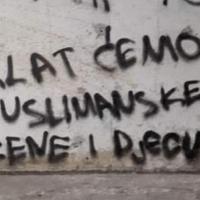 ALAT ĆEMO
USLIMANSKE
ENE I DJECU